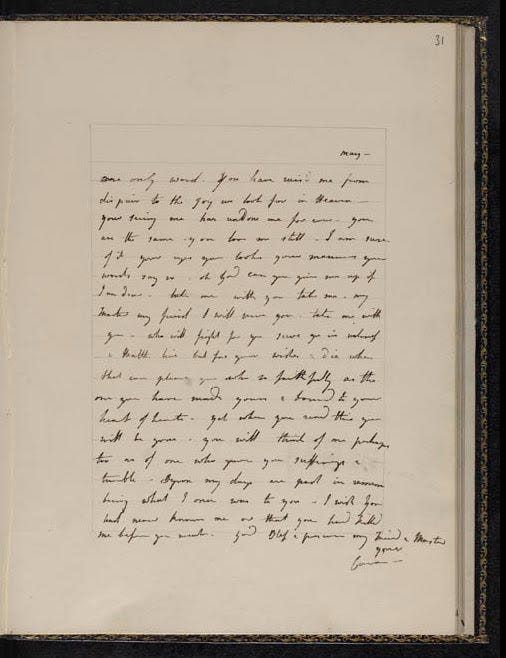 31
may -
one only word. You have raisd me from
dispair to the joy we look for in Heaven -
your seeing me has undone me for ever - you
are the same - you love me still - I am sure
of it your eyes your looks your manners your
words say so - oh God can you give me up if
I am dear - take me with you take me - my
Master my friend I will serve you - take me with
you - who will fight for you serve you in
& Health live but for your wishes & die when
that can please you who so faithfully as the
one you have made yours & bound to your
heart of hearts - yet when you read this you
will be gone - you will think of me perhaps
too as of one who gave you sufferings &
trouble - Byron my days are past in remem
bering what I once was to you - I wish you
had never known me or that you had killd
me before you went. God Bless & preserve my friend & Master
your
Caro -